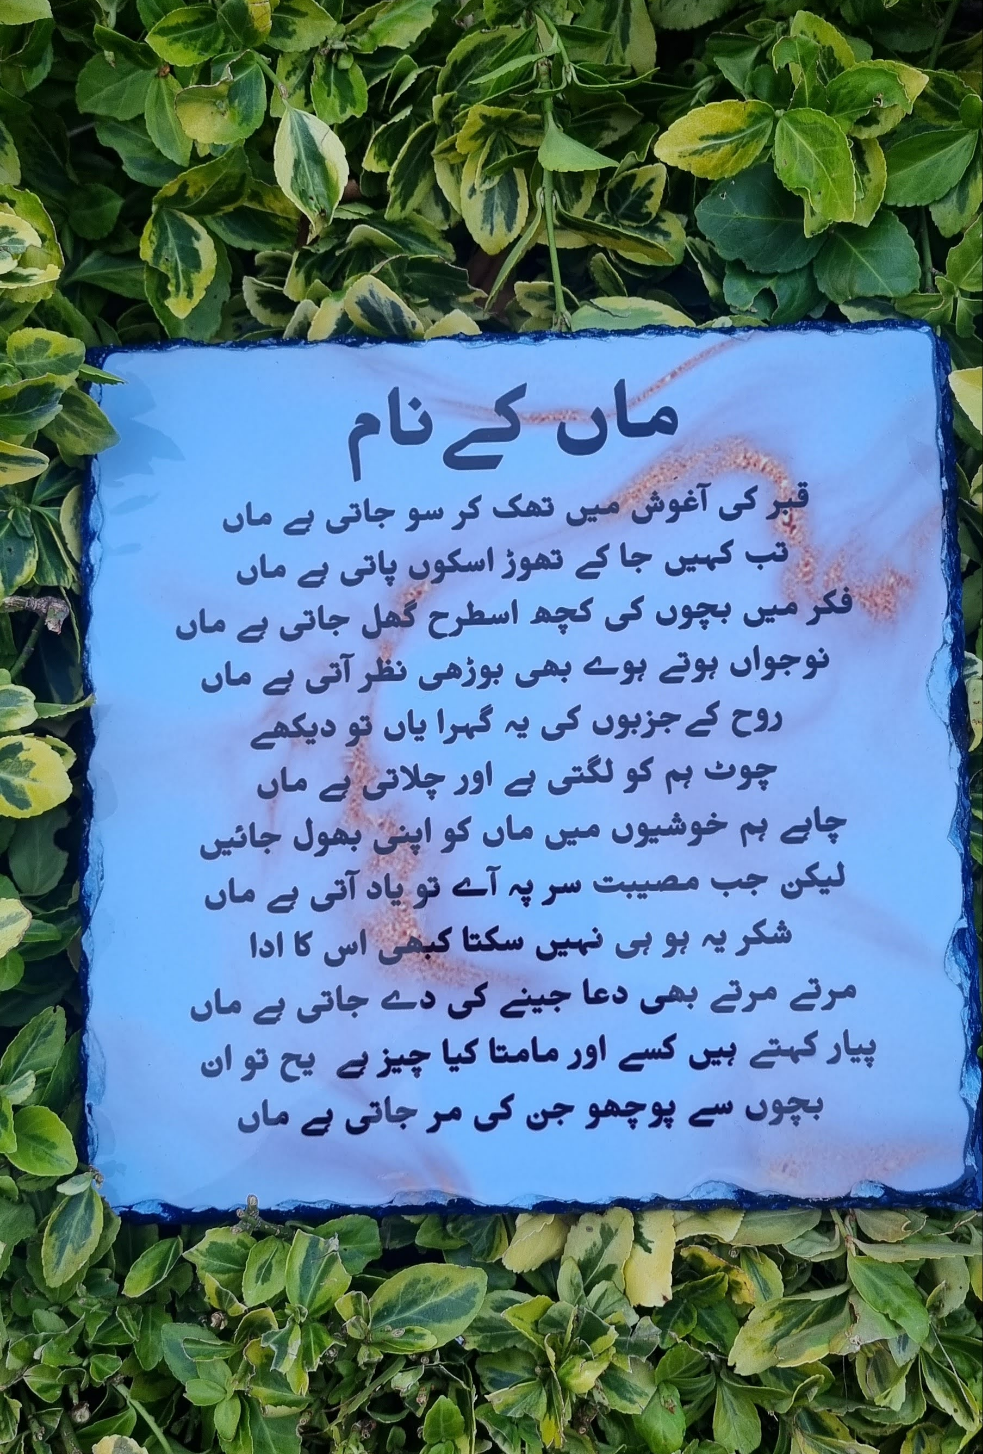 ماں کے نام
قبر کی آغوش میں تھک کر سو جاتی ہے ماں
تب کہیں جا کے تھوڑ اسکوں پاتی ہے ماں
فکر میں بچوں کی کچھ اسطرح گھل جاتی ہے ماں
نوجواں ہوتے ہوے بھی بوڑھی نظر آتی ہے ماں
روح کے جزبوں کی یہ گہرا یاں تو دیکھے
چوٹ ہم کو لگتی ہے اور چلاتی ہے ماں
چاہے ہم خوشیوں میں ماں کو اپنی بھول جائیں
لیکن جب مصیبت سر پہ آے تو یاد آتی ہے ماں
شکر یہ ہو ہی نہیں سکتا کبھی اس کا ادا
مرتے مرتے بھی دعا جینے کی دے جاتی ہے ماں
پیار کہتے ہیں کسے اور مامتا کیا چیز ہے یح تو ان
بچوں سے پوچھو جن کی مر جاتی ہے ماں